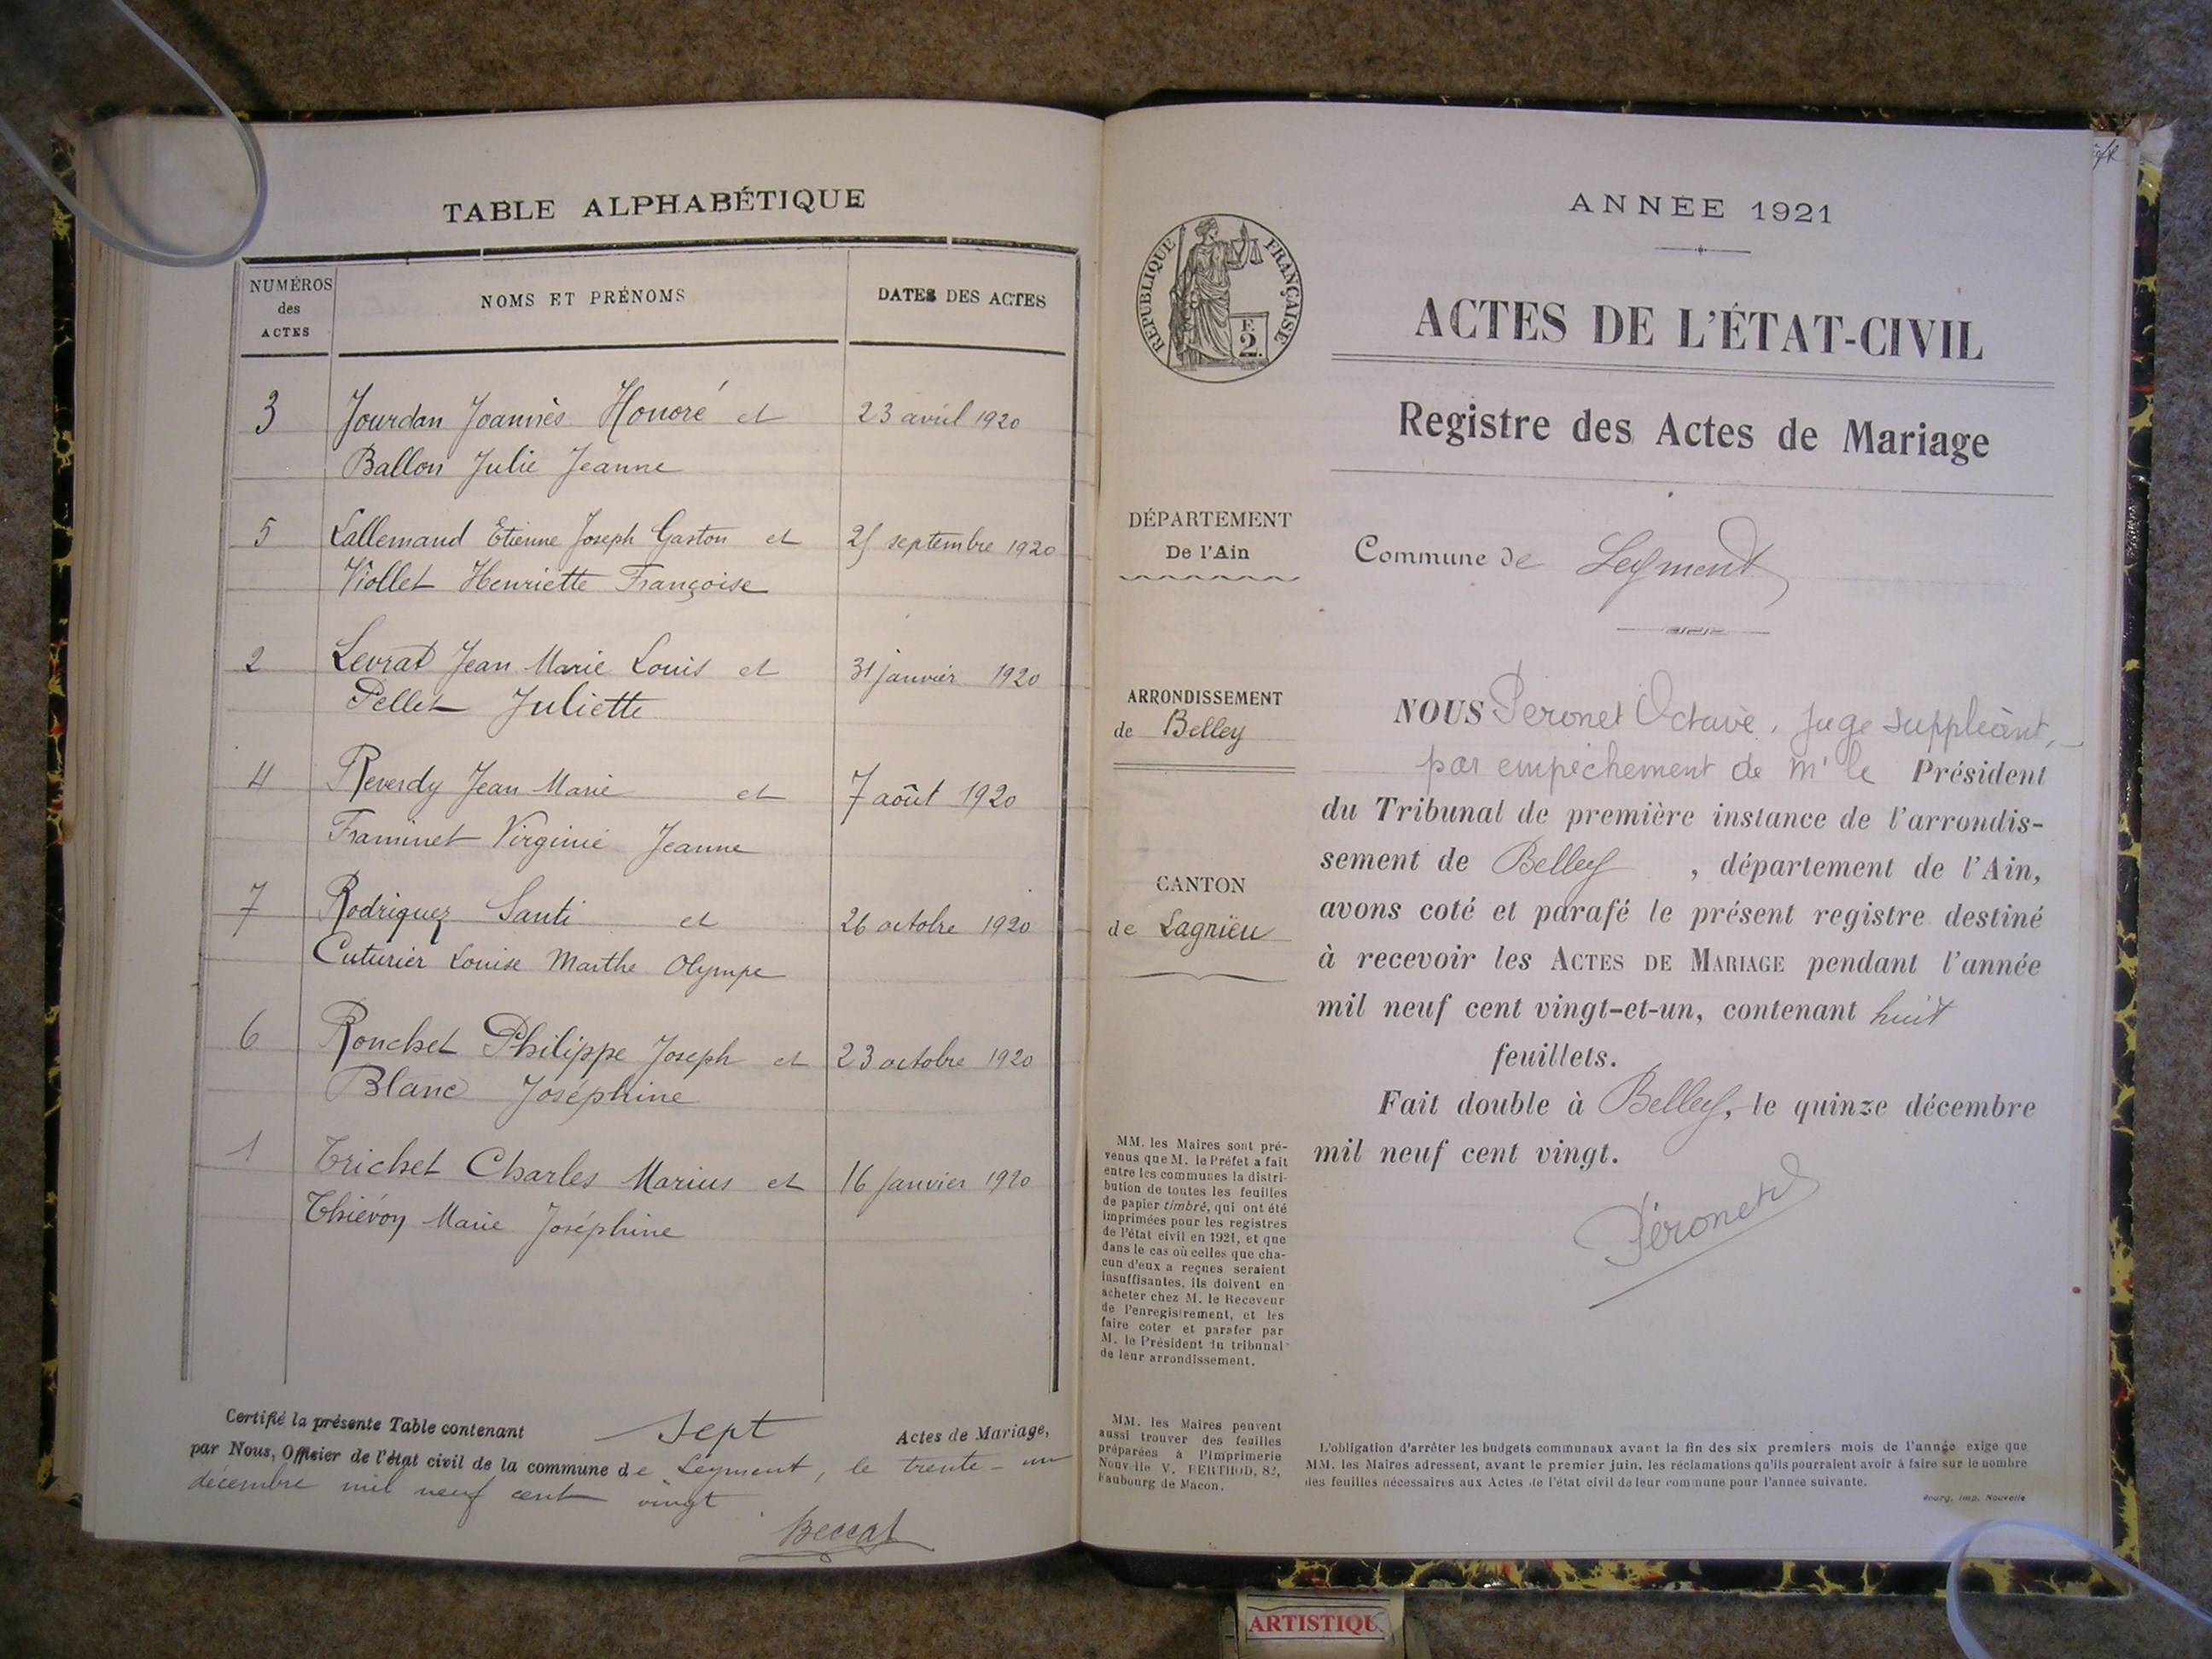 TABLE ALPHABÉTIQUE
NUMÉROS
des
ACTES
NOMS ET PRÉNOMS
DATES DES ACTES
3 Jourdan Joannès Honoré et 23 avril 1920
Ballon Julie Jeanne
5 Lallemand Etienne Joseph Gaston et 25 septembre 1920
Viollet Henriette Françoise
2 Levrat Jean Marie Louis et 31 janvier 1920
Pellet Juliette
4 Reverdy Jean Marie et 7 août 1920
Framinet Virginie Jeanne
7 Rodriguez Santi et 26 octobre 1920
Cuturier Louise Marthe Olympe
6 Ronchet Philippe Joseph et 23 octobre 1920
Blanc Joséphine
1 Trichet Charles Marius et 16 janvier 1920
Thiévon Marie Joséphine
Certifié la présente Table contenant sept Actes de Mariage,
par Nous, Officier de l'état civil de la commune de Leyment, le trente-un
décembre mil neuf cent vingt
Beccat
ANNÉE 1921
RÉPUBLIQUE FRANÇAISE
F.
2.
ACTES DE L'ÉTAT-CIVIL
Registre des Actes de Mariage
DÉPARTEMENT
De l'Ain
Commune de Leyment
ARRONDISSEMENT
de Belley
CANTON
de Lagnieu
NOUS Peronet Octave, juge suppléant,
par empêchement de Mr le Président
du Tribunal de première instance de l'arrondis-
sement de Belley, département de l'Ain,
avons coté et parafé le présent registre destiné
à recevoir les ACTES DE MARIAGE pendant l'année
mil neuf cent vingt-et-un, contenant huit
feuillets.
Fait double à Belley, le quinze décembre
mil neuf cent vingt.
Péronet
MM. les Maires sont pré-
venus que M. le Préfet a fait
entre les communes la distri-
bution de toutes les feuilles
de papier timbré, qui ont été
imprimées pour les registres
de l'état civil en 1921, et que
dans le cas où celles que cha-
cun d'eux a reçues seraient
insuffisantes, ils doivent en
acheter chez M. le Receveur
de l'enregistrement, et les
faire coter et parafer par
M. le Président du tribunal
de leur arrondissement.
MM. les Maires peuvent
aussi trouver des feuilles
préparées à l'imprimerie
Nouvelle V. BERTHOD, 82,
Faubourg de Macon.
L'obligation d'arrêter les budgets communaux avant la fin des six premiers mois de l'année exige que
MM. les Maires adressent, avant le premier juin, les réclamations qu'ils pourraient avoir à faire sur le nombre
des feuilles nécessaires aux Actes de l'état civil de leur commune pour l'année suivante.
Bourg, Imp. Nouvelle
ARTISTIQU